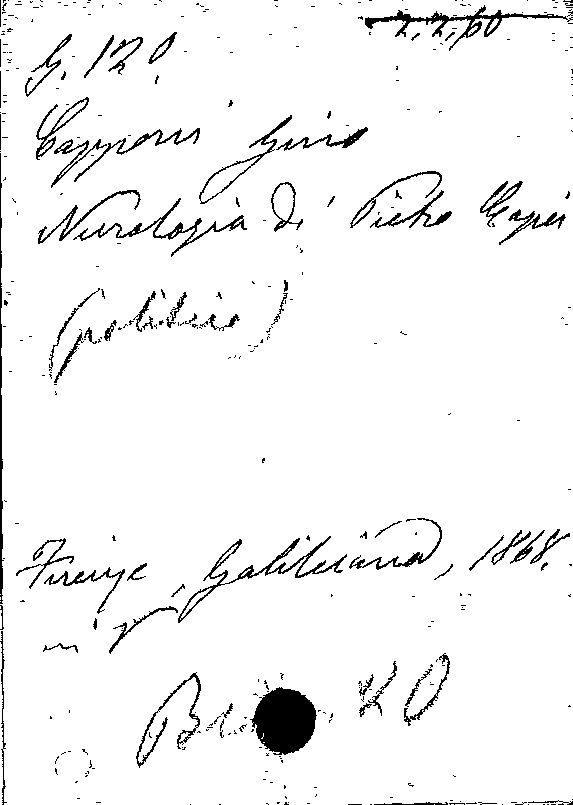 2.2.60
G. 120.
Capponi Gino
Necrologia di Pietro Capei
(politico)
Firenze, Galileiana, 1868.
in 8°
B 40